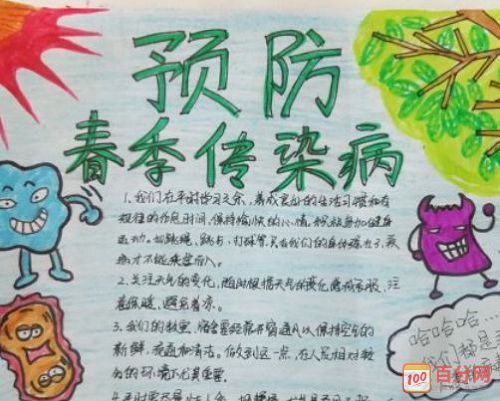 预防
春季传染病
1、我们在平时学习之余，养成良好的生活习惯和有
规律的作息时间，保持愉快的心情，积极参加健身
运动。如跳绳、跑步、打球等，只有我们的身体
病才不能乘虚而入。
2、关注天气的变化，随时根据天气的变化增减衣服，注
意保暖，避免着凉。
3、我们的教室、宿舍要经常开窗通风以保持空气的
新鲜，夜盖和清洁。做到这一点，在人员相对较
的环境下尤其重要。
哈哈哈
我们都是
100 百分网